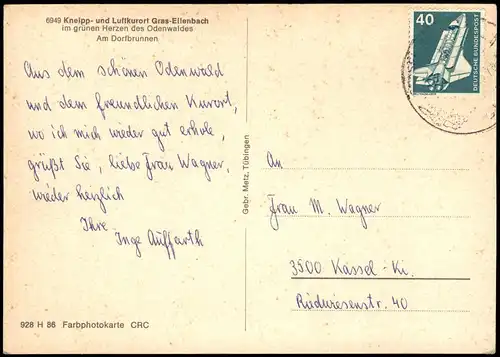 6949 Kneipp- und Luftkurort Gras-Ellenbach
im grünen Herzen des Odenwaldes
Am Dorfbrunnen
Aus dem schönen Odenwald
und dem freundlichen Kurort,
wo ich mich wieder gut erhole,
grüßt Sie, liebe Frau Wagner,
wieder herzlich
Ihre
Inge Auffarth
928 H 86 Farbphotokarte CRC
Gebr. Metz, Tübingen
40
DEUTSCHE BUNDESPOST
An
Frau M. Wagner
3500 Kassel-Ki.
Riedwiesenstr. 40